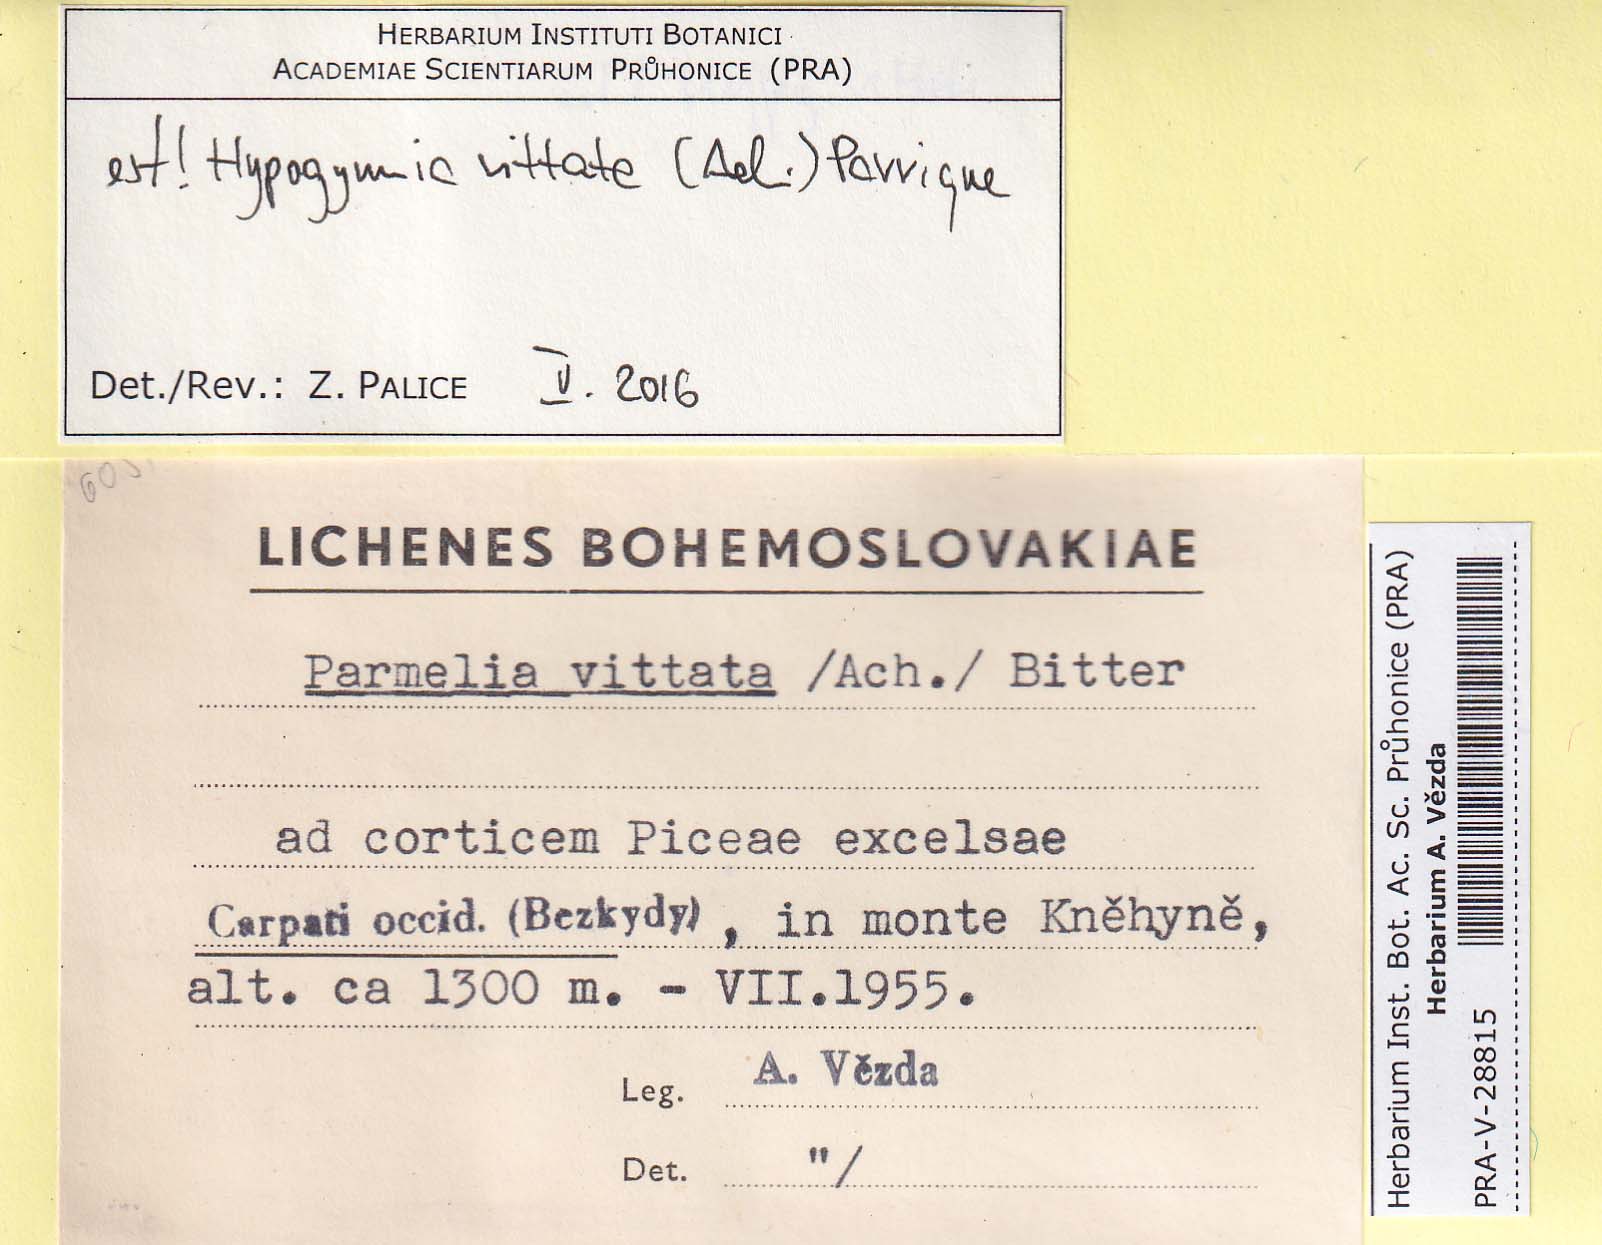 HERBARIUM INSTITUTI BOTANICI
ACADEMIAE SCIENTIARUM PRŮHONICE (PRA)
est! Hypogymnia vittata (Ach.) Parrique
Det./Rev.: Z. PALICE V. 2016
LICHENES BOHEMOSLOVAKIAE
Parmelia vittata /Ach./ Bitter
ad corticem Piceae excelsae
Carpati occid. (Bezkydy), in monte Kněhyně,
alt. ca 1300 m. - VII.1955.
Leg. A. Vězda
Det. "/
Herbarium Inst. Bot. Ac. Sc. Průhonice (PRA)
Herbarium A. Vězda
PRA-V-28815